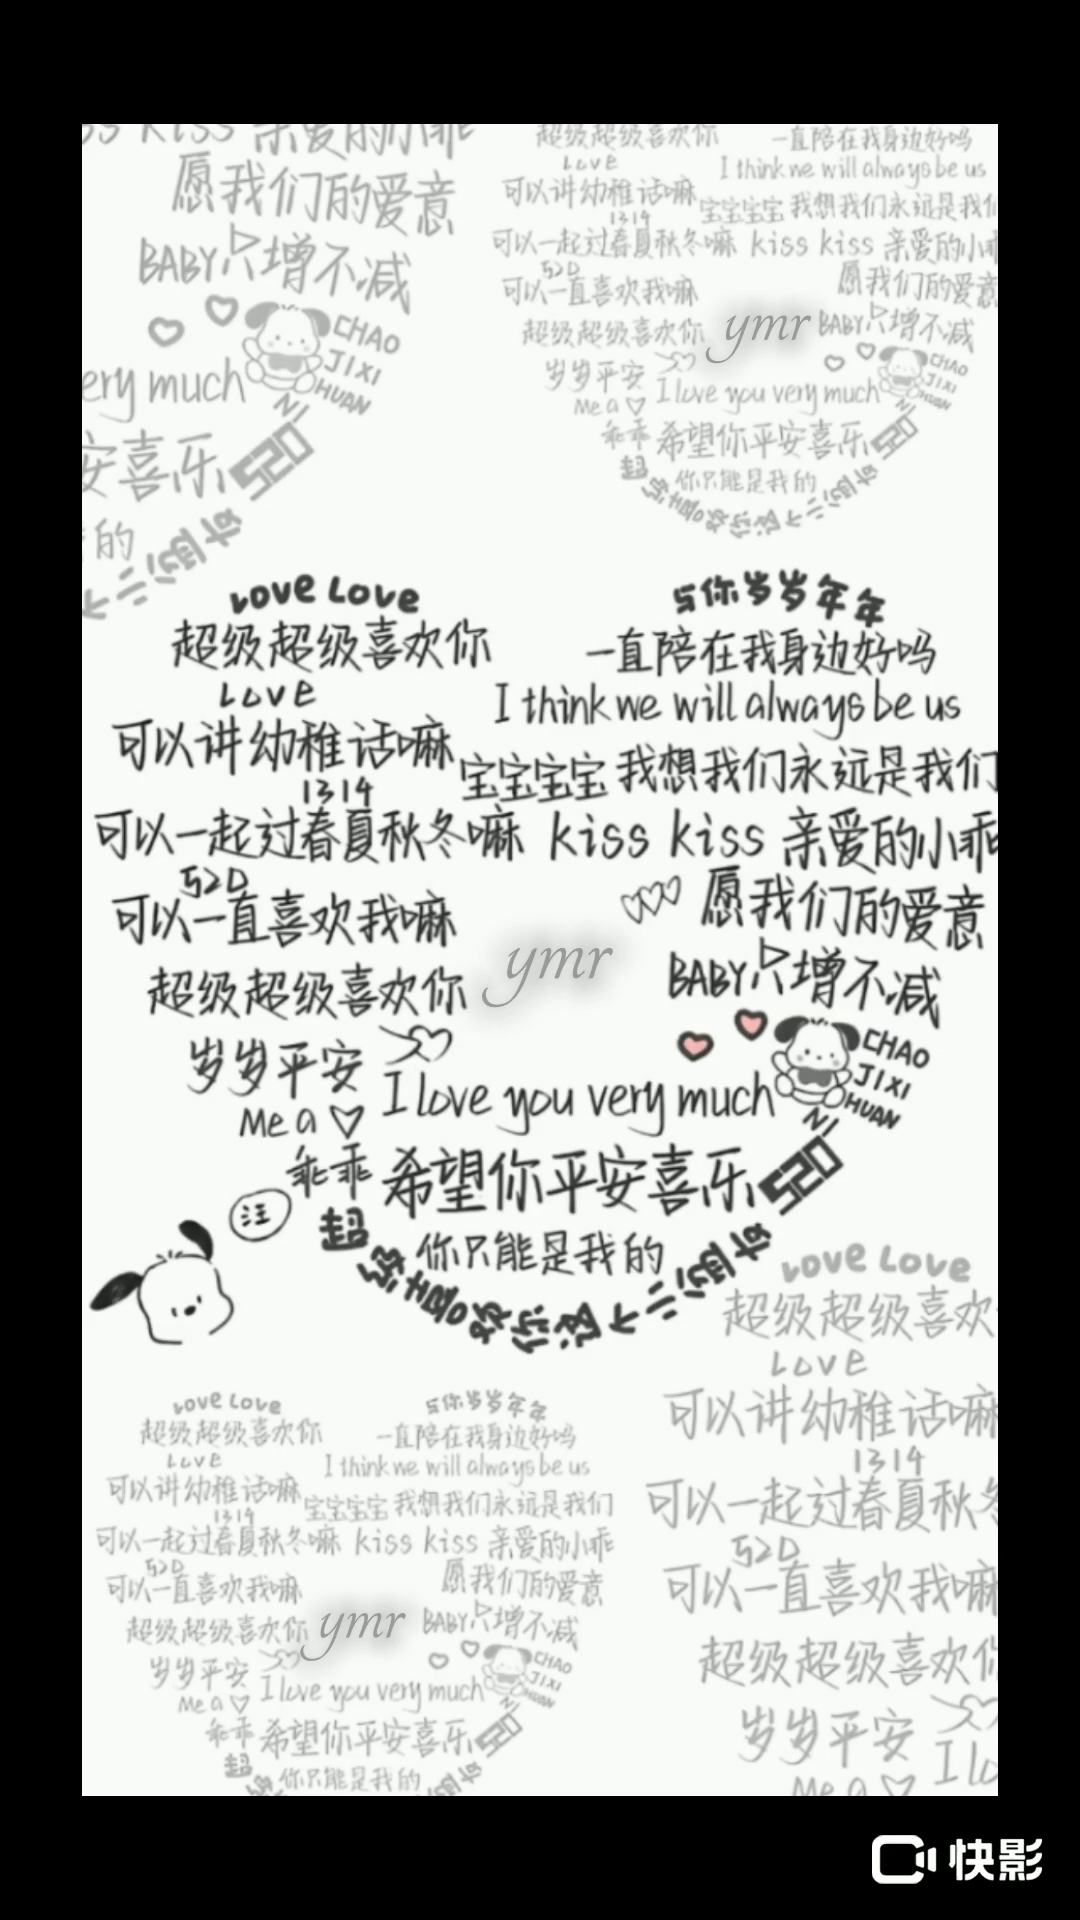 ss kiss 亲爱的小乖
愿我们的爱意
BABY只增不减
CHAO
JIXI
HUAN
NI
ery much
安喜乐
520
的
不二心的
超级超级喜欢你
LOVE
可以讲幼稚话嘛
1314
可以一起过春夏秋冬嘛
520
可以一直喜欢我嘛
超级超级喜欢你
岁岁平安
Me a
乖乖
一直陪在我身边好吗
I think we will always be us
宝宝宝宝 我想我们永远是我们
kiss kiss 亲爱的小
愿我们的爱意
ymr
BABY只增不减
CHAO
JIXI
HUAN
NI
I love you very much
希望你平安喜乐
520
你只能是我的
Love Love
超级超级喜欢你
LOVE
可以讲幼稚话嘛
1314
可以一起过春夏秋冬嘛
520
可以一直喜欢我嘛
超级超级喜欢你
岁岁平安
Me a
乖乖
与你岁岁年年
一直陪在我身边好吗
I think we will always be us
宝宝宝宝 我想我们永远是我们
kiss kiss 亲爱的小乖
愿我们的爱意
ymr
BABY只增不减
CHAO
JIXI
HUAN
NI
I love you very much
希望你平安喜乐
520
你只能是我的
汪
Love Love
超级超级喜欢你
LOVE
可以讲幼稚话嘛
1314
可以一起过春夏秋冬嘛
520
可以一直喜欢我嘛
超级超级喜欢你
岁岁平安
Me a
乖乖
与你岁岁年年
一直陪在我身边好吗
I think we will always be us
宝宝宝宝 我想我们永远是我们
kiss kiss 亲爱的小乖
愿我们的爱意
ymr
BABY只增不减
CHAO
JIXI
HUAN
NI
I love you very much
希望你平安喜乐
520
你只能是我的
Love Love
超级超级喜欢
LOVE
可以讲幼稚话嘛
1314
可以一起过春夏秋冬
520
可以一直喜欢我嘛
超级超级喜欢你
岁岁平安
I lo
Me a
快影